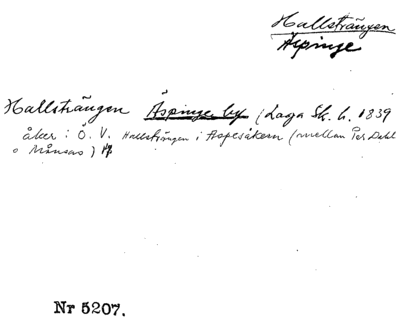 Hallsträngen
Äspinge
Hallsträngen Äspinge by (Laga Sk. h. 1839
åker: Ö. V. Hallsträngen i Aspesåkern (mellan Per Dahl
o Månsas)
Nr 5207.